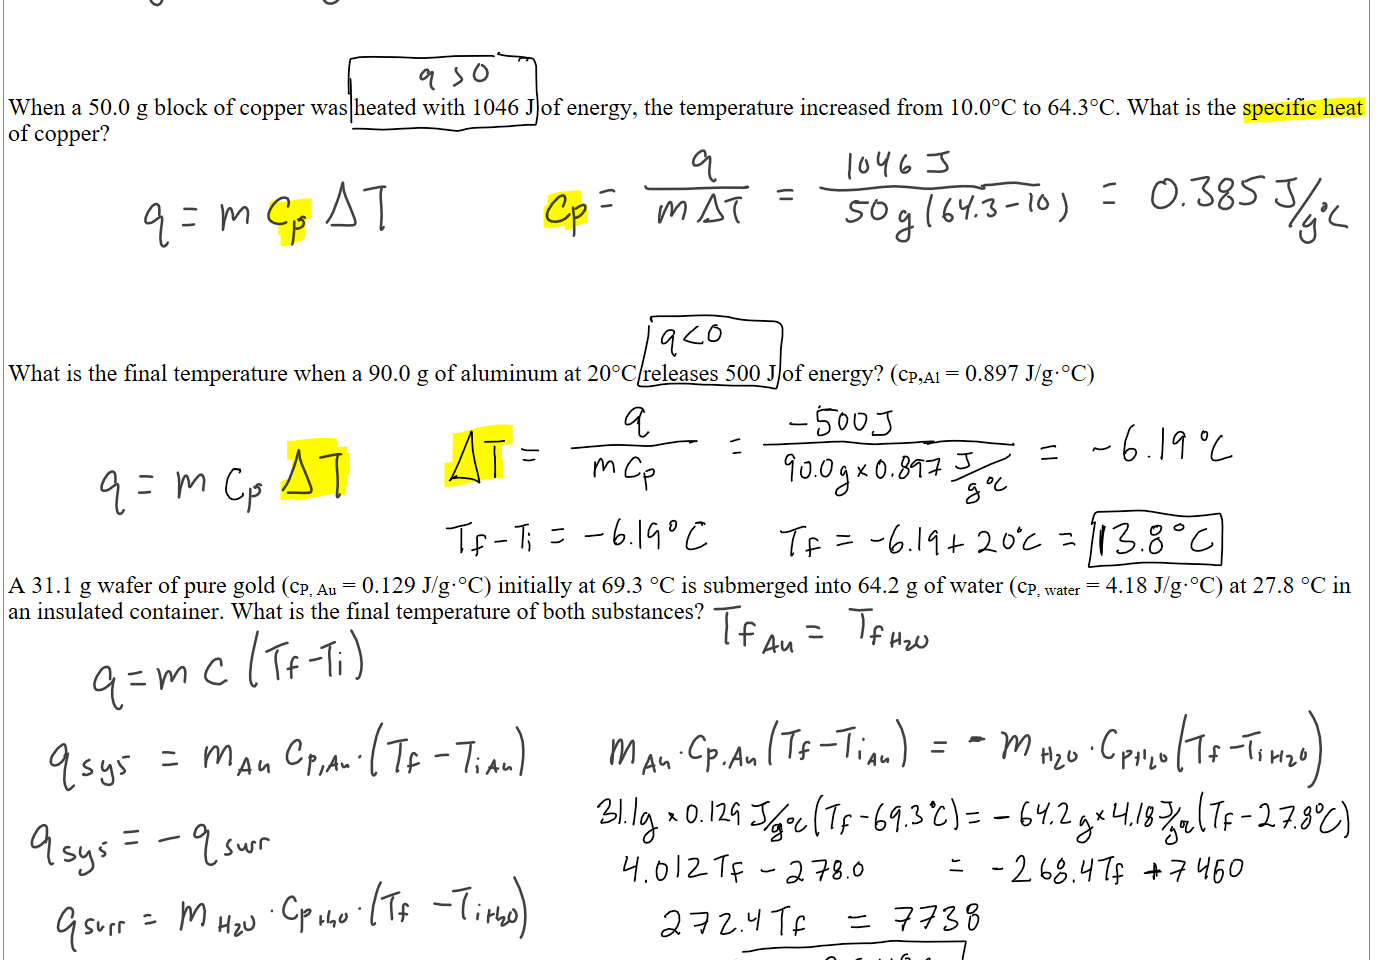 q > 0
When a 50.0 g block of copper was heated with 1046 J of energy, the temperature increased from 10.0°C to 64.3°C. What is the specific heat
of copper?
q = m Cp ΔT    Cp = q / (m ΔT) = 1046 J / (50 g (64.3-10)) = 0.385 J/g°C
q < 0
What is the final temperature when a 90.0 g of aluminum at 20°C releases 500 J of energy? (cP,Al = 0.897 J/g·°C)
q = m Cp ΔT    ΔT = q / (m Cp) = -500 J / (90.0 g × 0.897 J/g°C) = -6.19 °C
Tf - Ti = -6.19°C    Tf = -6.19 + 20°C = 13.8°C
A 31.1 g wafer of pure gold (cP, Au = 0.129 J/g·°C) initially at 69.3 °C is submerged into 64.2 g of water (cP, water = 4.18 J/g·°C) at 27.8 °C in
an insulated container. What is the final temperature of both substances?
Tf Au = Tf H2O
q = m C (Tf - Ti)
q sys = m Au Cp,Au · (Tf - Ti Au)    m Au · Cp.Au (Tf - Ti Au) = - m H2O · Cp H2O (Tf - Ti H2O)
31.1g × 0.129 J/g°C (Tf - 69.3°C) = - 64.2 g × 4.18 J/g°C (Tf - 27.8°C)
q sys = - q surr    4.012 Tf - 278.0 = -268.4 Tf + 7460
q surr = m H2O · Cp H2O · (Tf - Ti H2O)    272.4 Tf = 7738